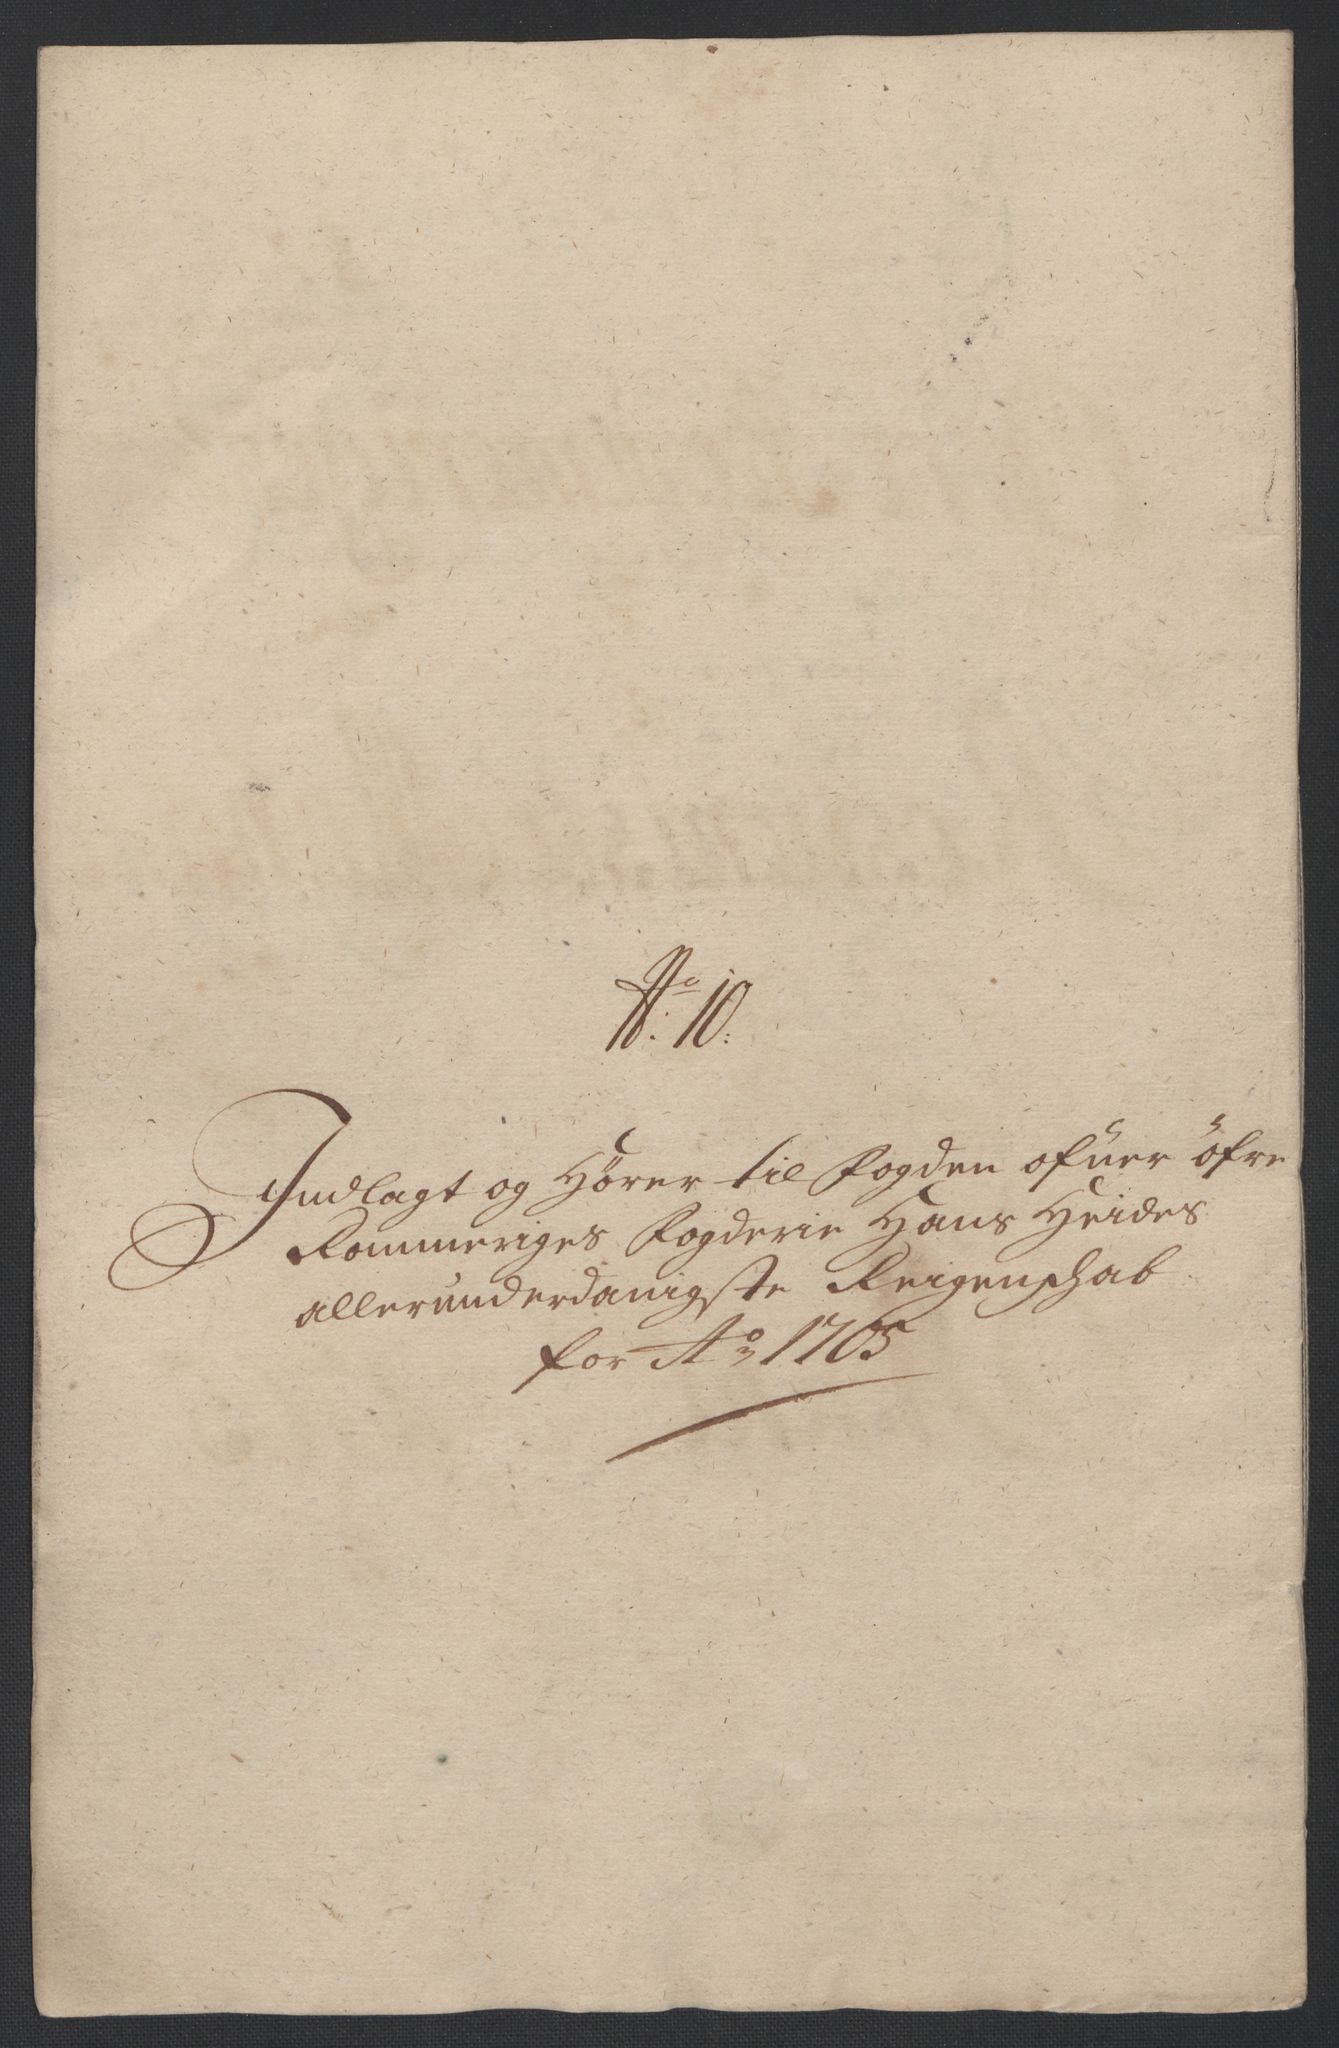 No: 10:
Indlagt og Hörer til Fogden ofuer öfre
Rommeriges Fogderie Hans Heides
allerunderdanigste Reigenschab
for Ao 1705